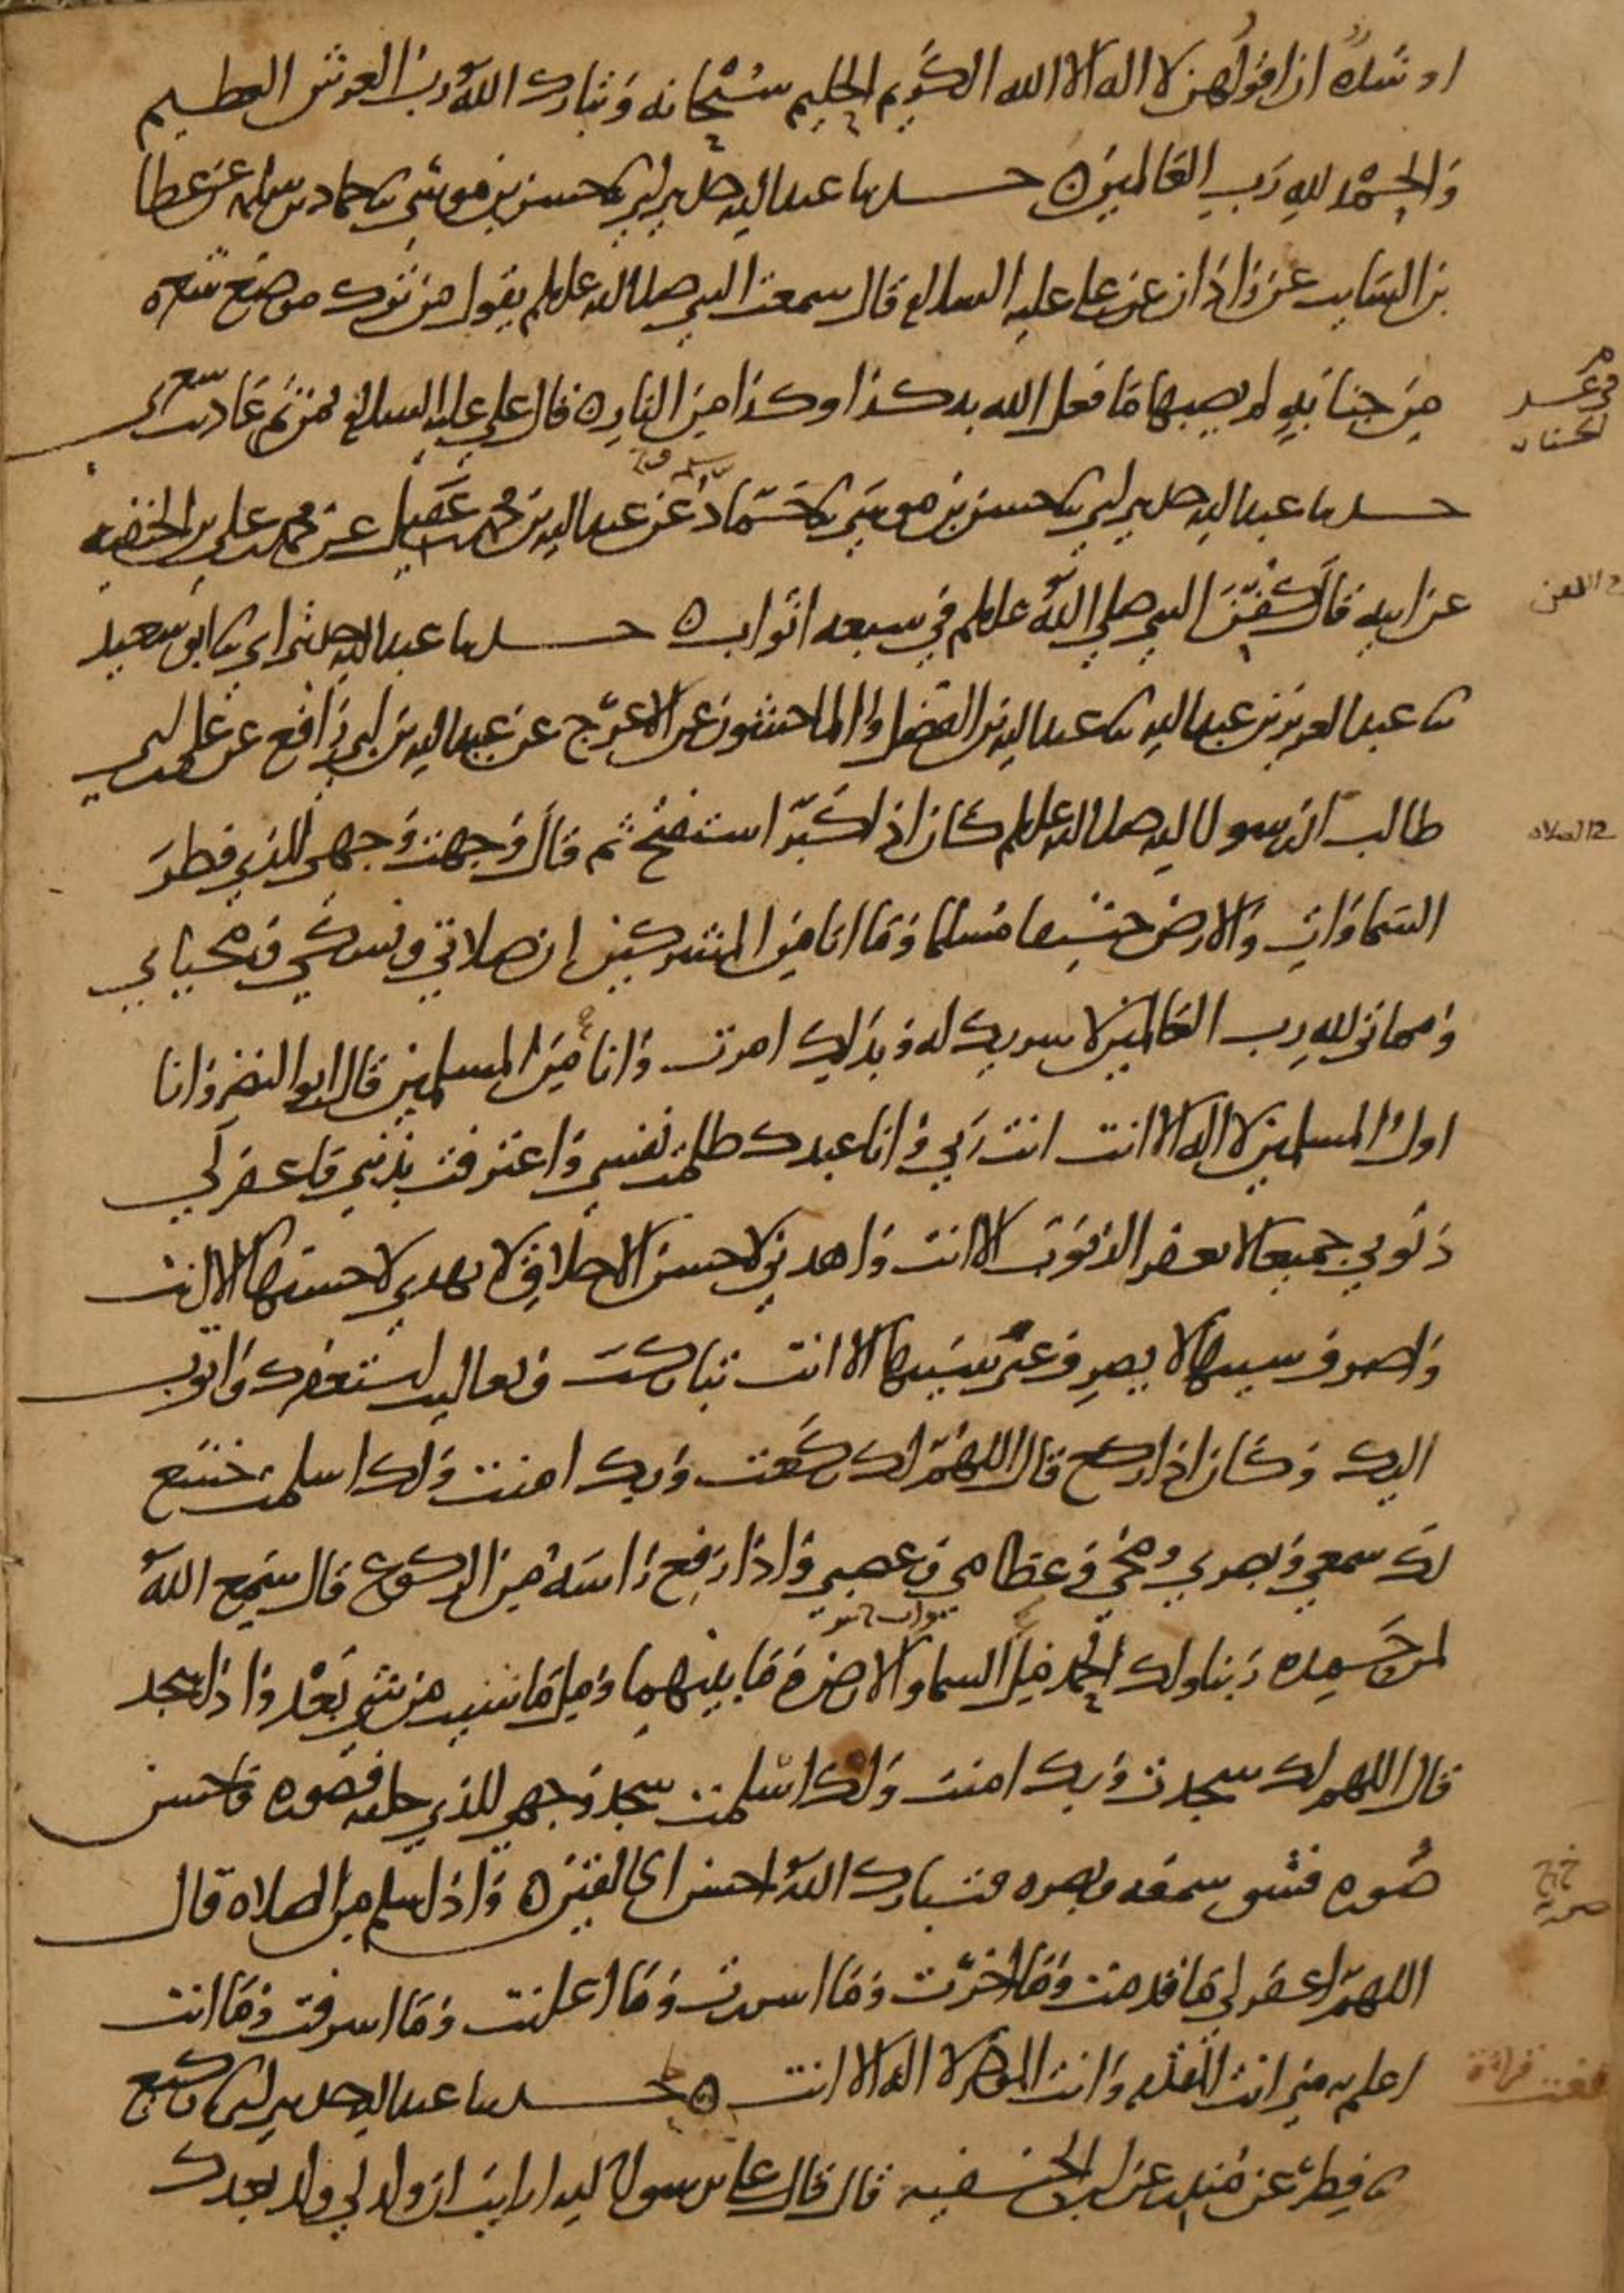 او شده ان اقولهن لا اله الا الله الكريم الحليم سبحانه وتبارك الله رب العرش العظيم
والحمد لله رب العالمين ه حدثنا عبد الله حدثني ابي نا حسن بن موسى نا حماد بن سلمه عن عطا
بن السايب عن زاذان عن علي عليه السلام قال سمعت النبي صلى الله عليه وسلم يقول من ترك موضع شعره
من جنابه لم يصبها ما فعل الله به كذا وكذا من النار ه قال علي عليه السلام فمن ثم عاديت شعري
حدثنا عبد الله حدثني ابي نا حسن بن موسى نا حماد عن عبد الله بن محمد بن عقيل عن محمد بن علي بن الحنفيه
عن ابيه قال كفن النبي صلى الله عليه وسلم في سبعه اثواب ه حدثنا عبد الله حدثني ابي نا ابو سعيد
نا عبد العزيز بن عبد الله نا عبد الله بن الفضل والماجشون عن الاعرج عن عبيد الله بن ابي رافع عن علي بن ابي
طالب ان رسول الله صلى الله عليه وسلم كان اذا كبر استفتح ثم قال وجهت وجهي للذي فطر
السماوات والارض حنيفا مسلما وما انا من المشركين ان صلاتي ونسكي ومحياي
ومماتي لله رب العالمين لا شريك له وبذلك امرت وانا من المسلمين قال ابو النضر وانا
اول المسلمين لا اله الا انت انت ربي وانا عبدك ظلمت نفسي واعترفت بذنبي فاغفر لي
ذنوبي جميعا لا يغفر الذنوب الا انت واهدني لاحسن الاخلاق لا يهدي لاحسنها الا انت
واصرف عني سييها لا يصرف عني سييها الا انت تباركت وتعاليت استغفرك واتوب
اليك وكان اذا ركع قال اللهم لك ركعت وبك امنت ولك اسلمت خشع
لك سمعي وبصري ومخي وعظامي وعصبي واذا رفع راسه من الركوع قال سمع الله
لمن حمده ربنا ولك الحمد مل السما والارض وما بينهما ومل ما شيت من شي بعد واذا سجد
قال اللهم لك سجدت وبك امنت ولك اسلمت سجد وجهي للذي خلقه فصوره فاحسن
صوره فشق سمعه وبصره فتبارك الله احسن الخالقين ه واذا سلم من الصلاه قال
اللهم اغفر لي ما قدمت وما اخرت وما اسررت وما اعلنت وما اسرفت وما انت
اعلم به مني انت المقدم وانت الموخر لا اله الا انت ه حدثنا عبد الله حدثني ابي نا وكيع
نا فطر عن منذر عن ابن الحنفيه قال قال علي يا رسول الله ارايت ان ولد لي ولد بعدك